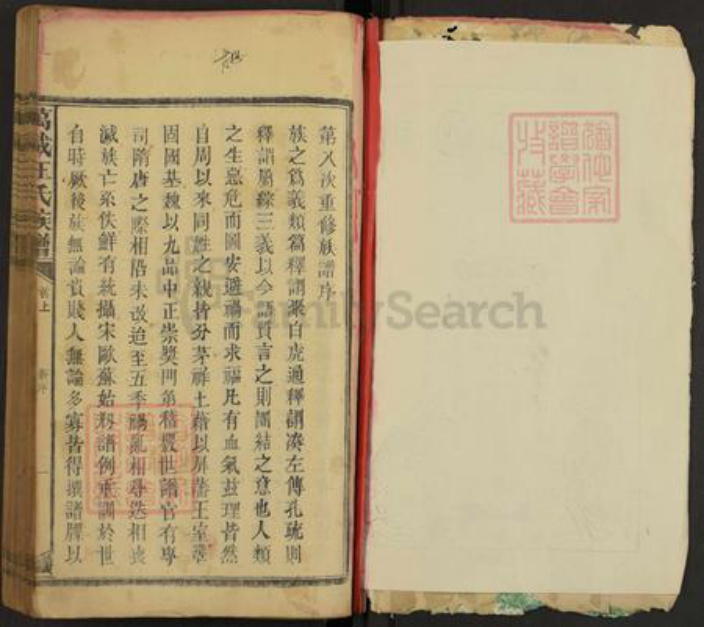 第八次重修族譜序
族之爲義類篇釋謂聚白虎通釋謂湊左傳孔疏則
釋謂屬綜三義以今語質言之則團結之意也人類
之生惡危而圖安避禍而求福凡有血氣玆理皆然
自周以來同姓之親皆分茅胙土藉以屏藩王室鞏
固國基魏以九品中正崇獎門第稽覈世譜官有專
司隋唐之際相沿未改迨至五季禍亂相尋迭相喪
滅族亡系佚鮮有統攝宋歐蘇始剏譜例垂訓於世
自時厥後族無論貴賤人無論多寡皆得撰譜牒以
萬載汪氏族譜
卷上
新序
一
FamilySearch